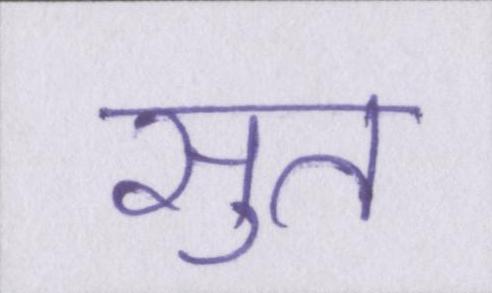 सुत